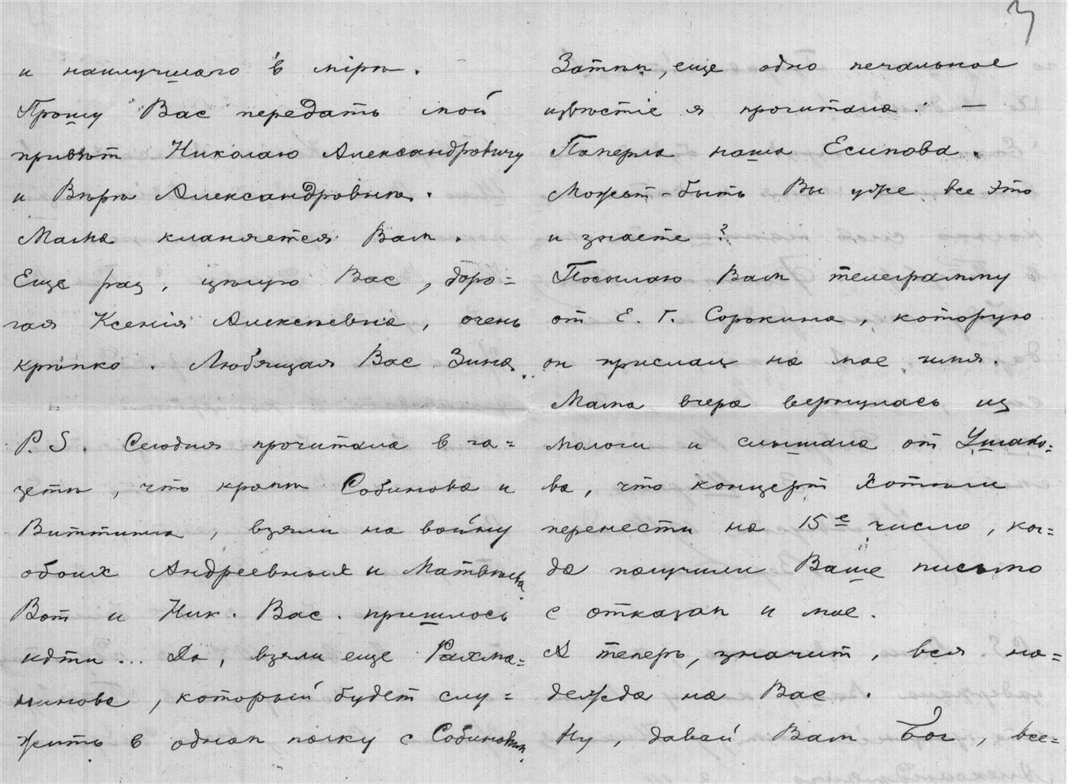 и наилучшаго в мірѣ.
Прошу Вас передать мой
привѣт Николаю Александровичу
и Вѣрѣ Александровнѣ.
Мама кланяется Вам.
Еще раз, цѣлую Вас, доро=
гая Ксенія Алексѣевна, очень
крѣпко. Любящая Вас Зина.
P.S. Сегодня прочитала в га=
зетѣ, что кромѣ Собинова и
Виттинга, взяли на войну
обоих Андреевных и Матвѣева
Вот и Ник. Вас. пришлось
идти... Да, взяли еще Рахма=
нинова, который будет слу=
жить в одном полку с Собиновым,
3
Затѣм, еще одно печальное
извѣстіе я прочитала: —
Померла наша Есипова.
Может-быть Вы уже все это
и знаете?
Посылаю Вам телеграмму
от Е. Г. Сорокина, которую
он прислал на мое имя.
Мама вчера вернулась из
Мологи и слышала от Ушако=
ва, что концерт хотѣли
перенести на 15е число, ког=
да получили Ваше письмо
с отказом и мое.
А теперь, значит, вся на=
дежда на Вас.
Ну, давай Вам Бог, все=